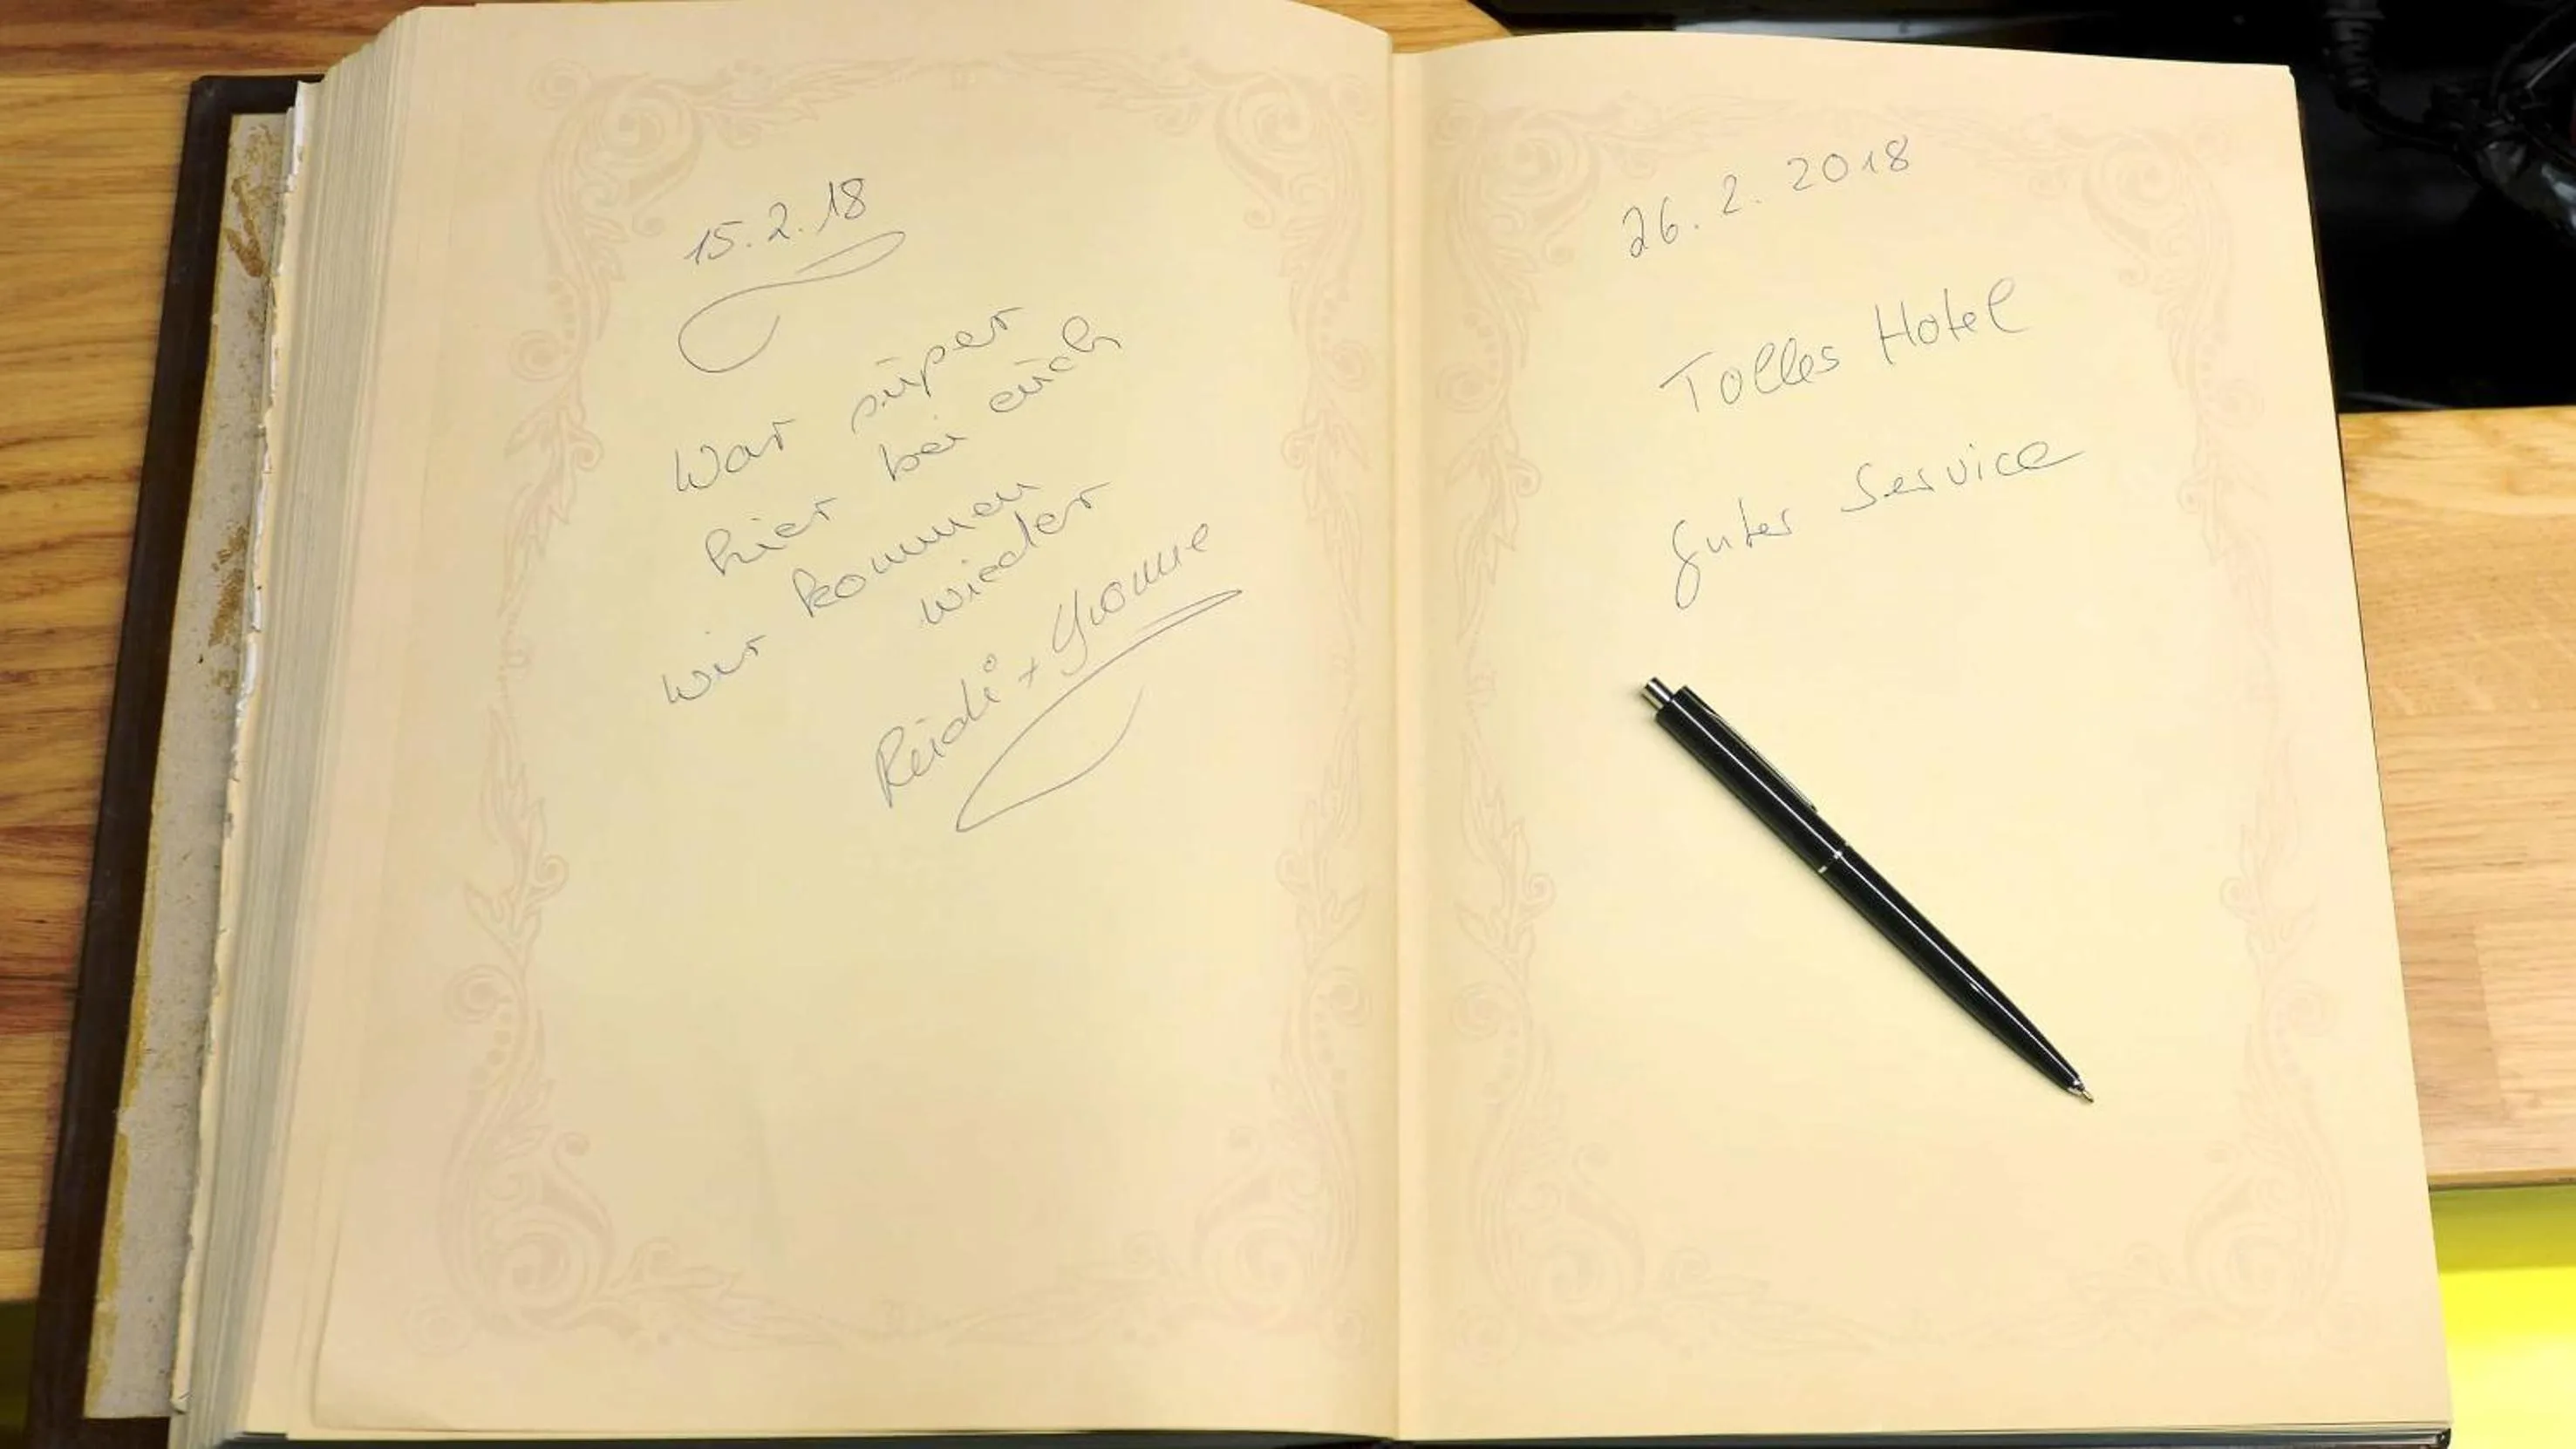 15.2.18
War super
hier bei euch
wir kommen
wieder
+ Yvonne
26.2.2018
Tolles Hotel
guter Service